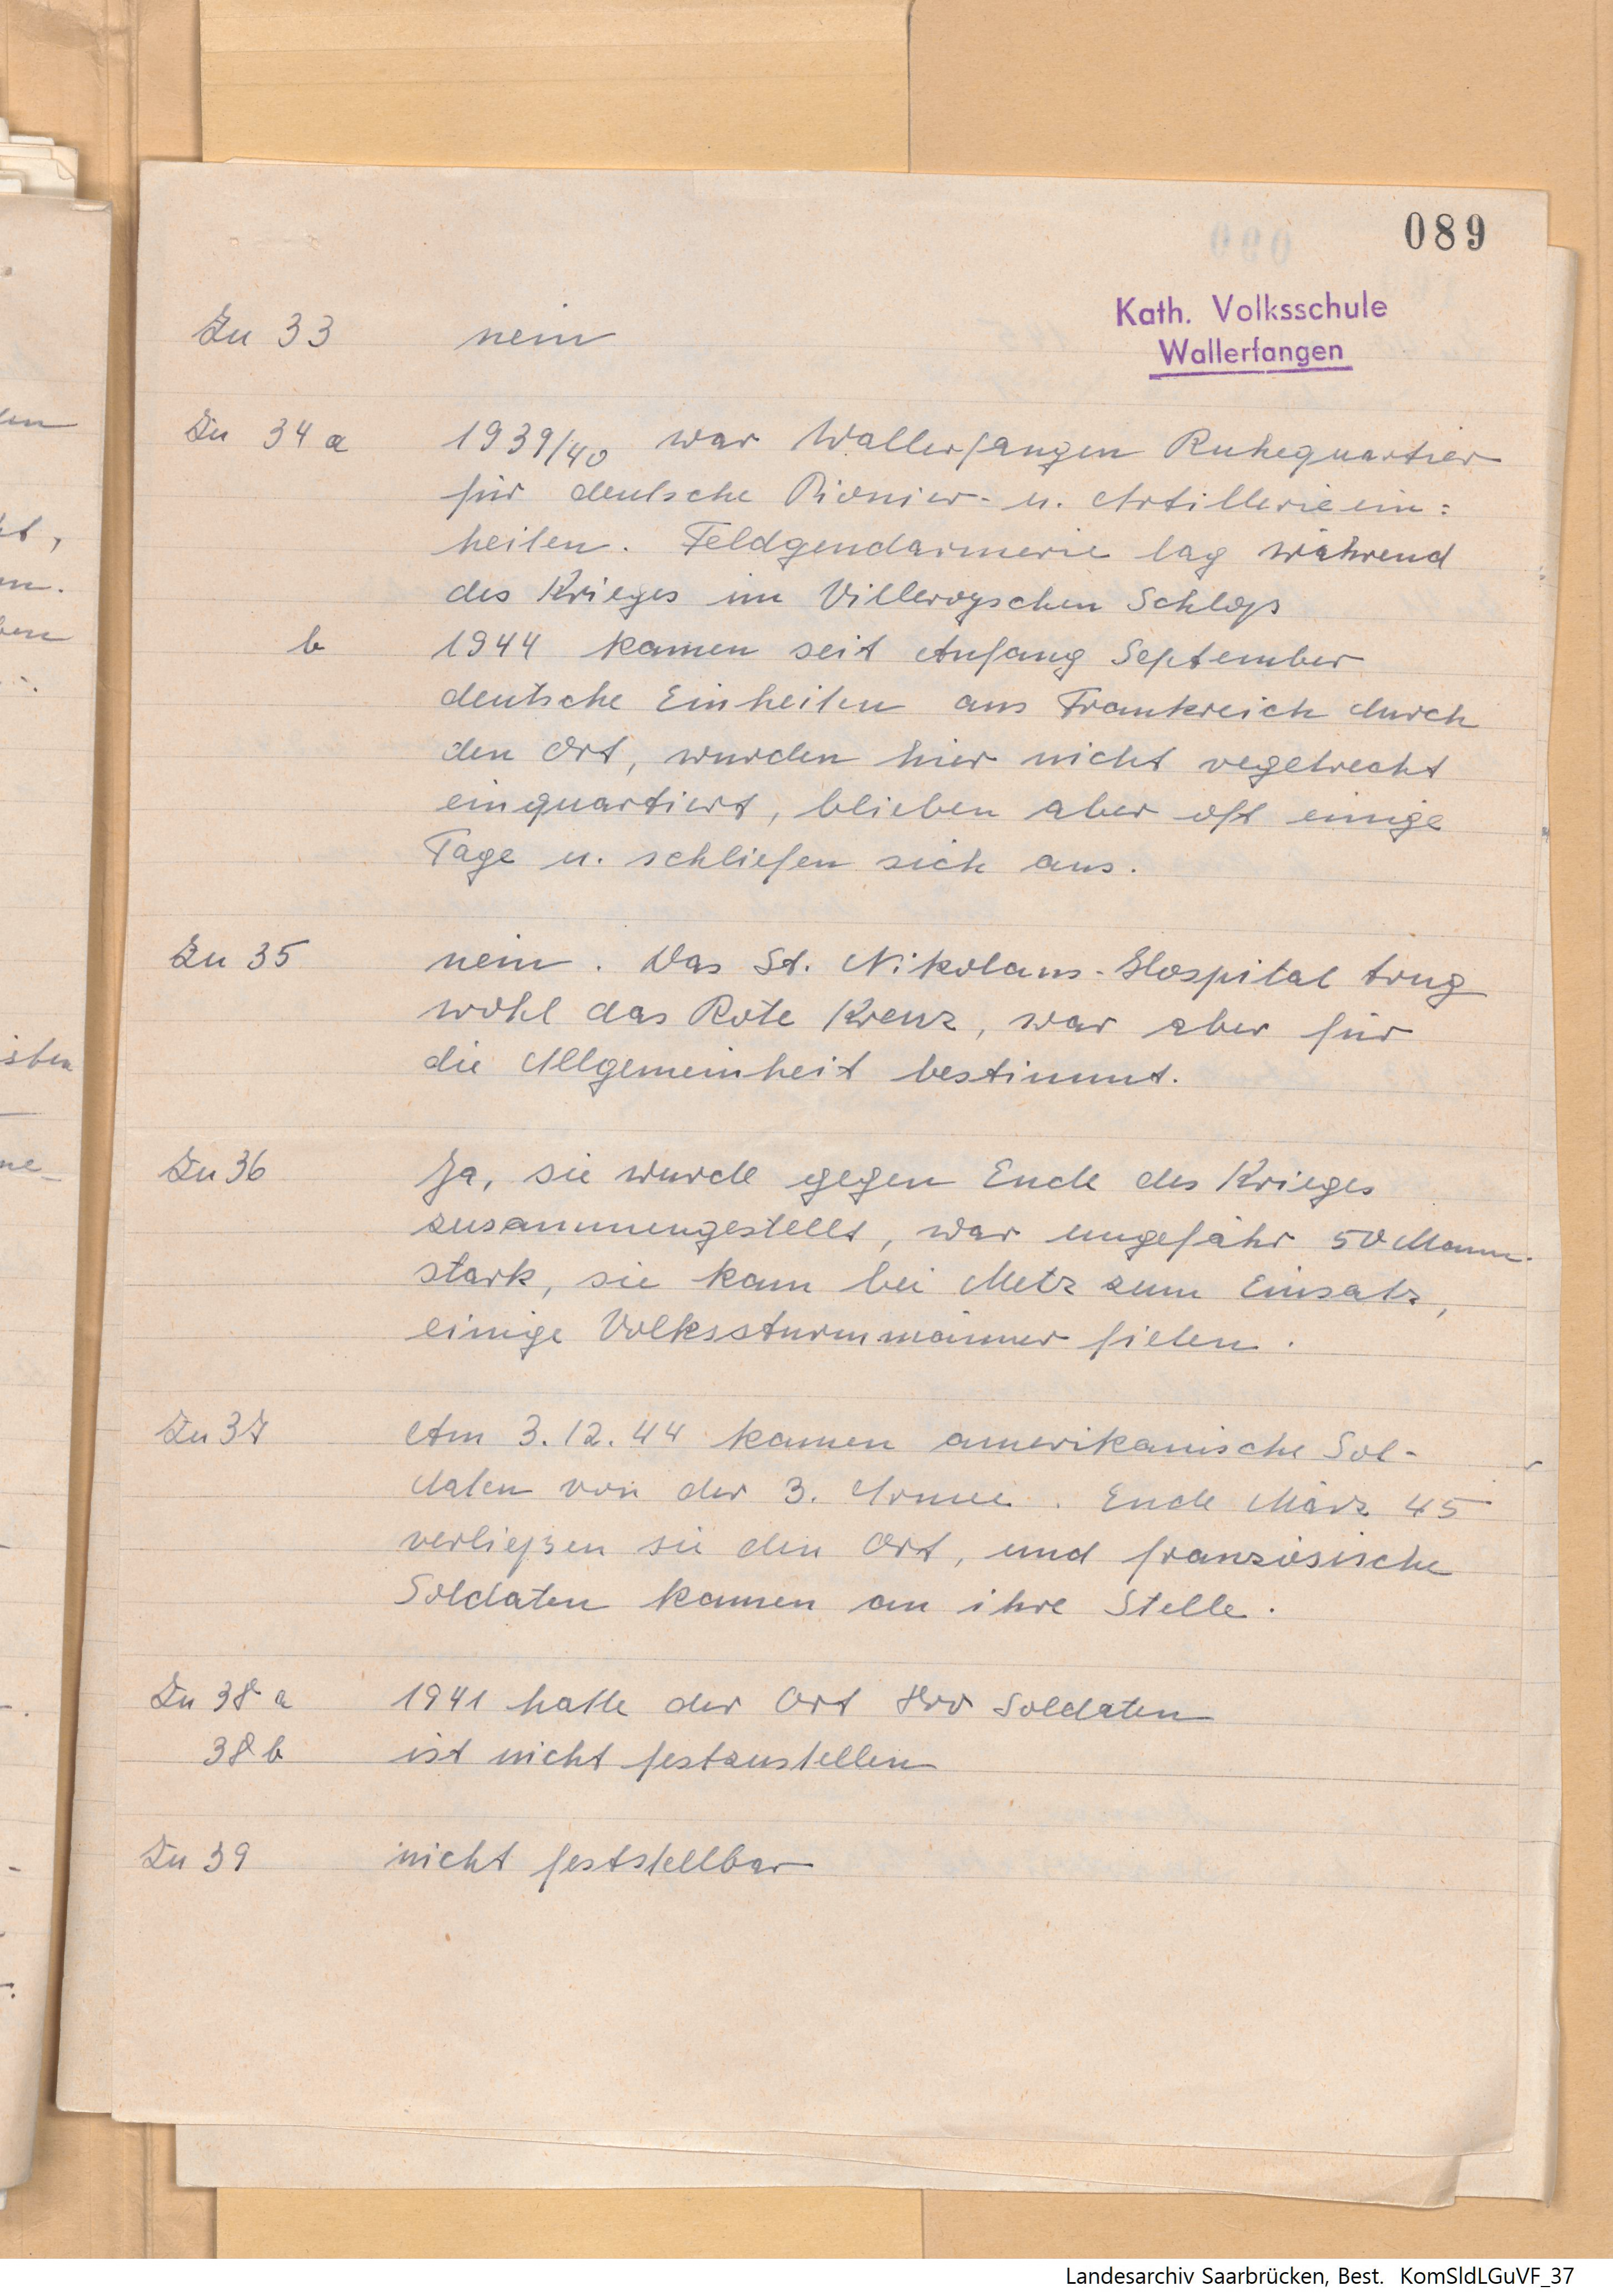 089
Kath. Volksschule
Wallerfangen
Zu 33 nein
Zu 34 a 1939/40 war Wallerfangen Ruhequartier
für deutsche Pionier- u. Artillerieein:
heiten. Feldgendarmerie lag während
des Krieges im Villeroyschen Schloß
b 1944 kamen seit Anfang September
deutsche Einheiten aus Frankreich durch
den Ort, wurden hier nicht regelrecht
einquartiert, blieben aber oft einige
Tage u. schliefen sich aus.
Zu 35 nein. Das St. Nikolaus-Hospital trug
wohl das Rote Kreuz, war aber für
die Allgemeinheit bestimmt.
Zu 36 Ja, sie wurde gegen Ende des Krieges
zusammengestellt, war ungefähr 50 Mann
stark, sie kam bei Metz zum Einsatz,
einige Volkssturmmänner fielen.
Zu 37 Am 3.12.44 kamen amerikanische Sol-
daten von der 3. Armee. Ende März 45
verließen sie den Ort, und französische
Soldaten kamen an ihre Stelle.
Zu 38 a 1941 hatte der Ort Soldaten
38 b ist nicht festzustellen
Zu 39 nicht feststellbar
Landesarchiv Saarbrücken, Best. KomSldLGuVF_37